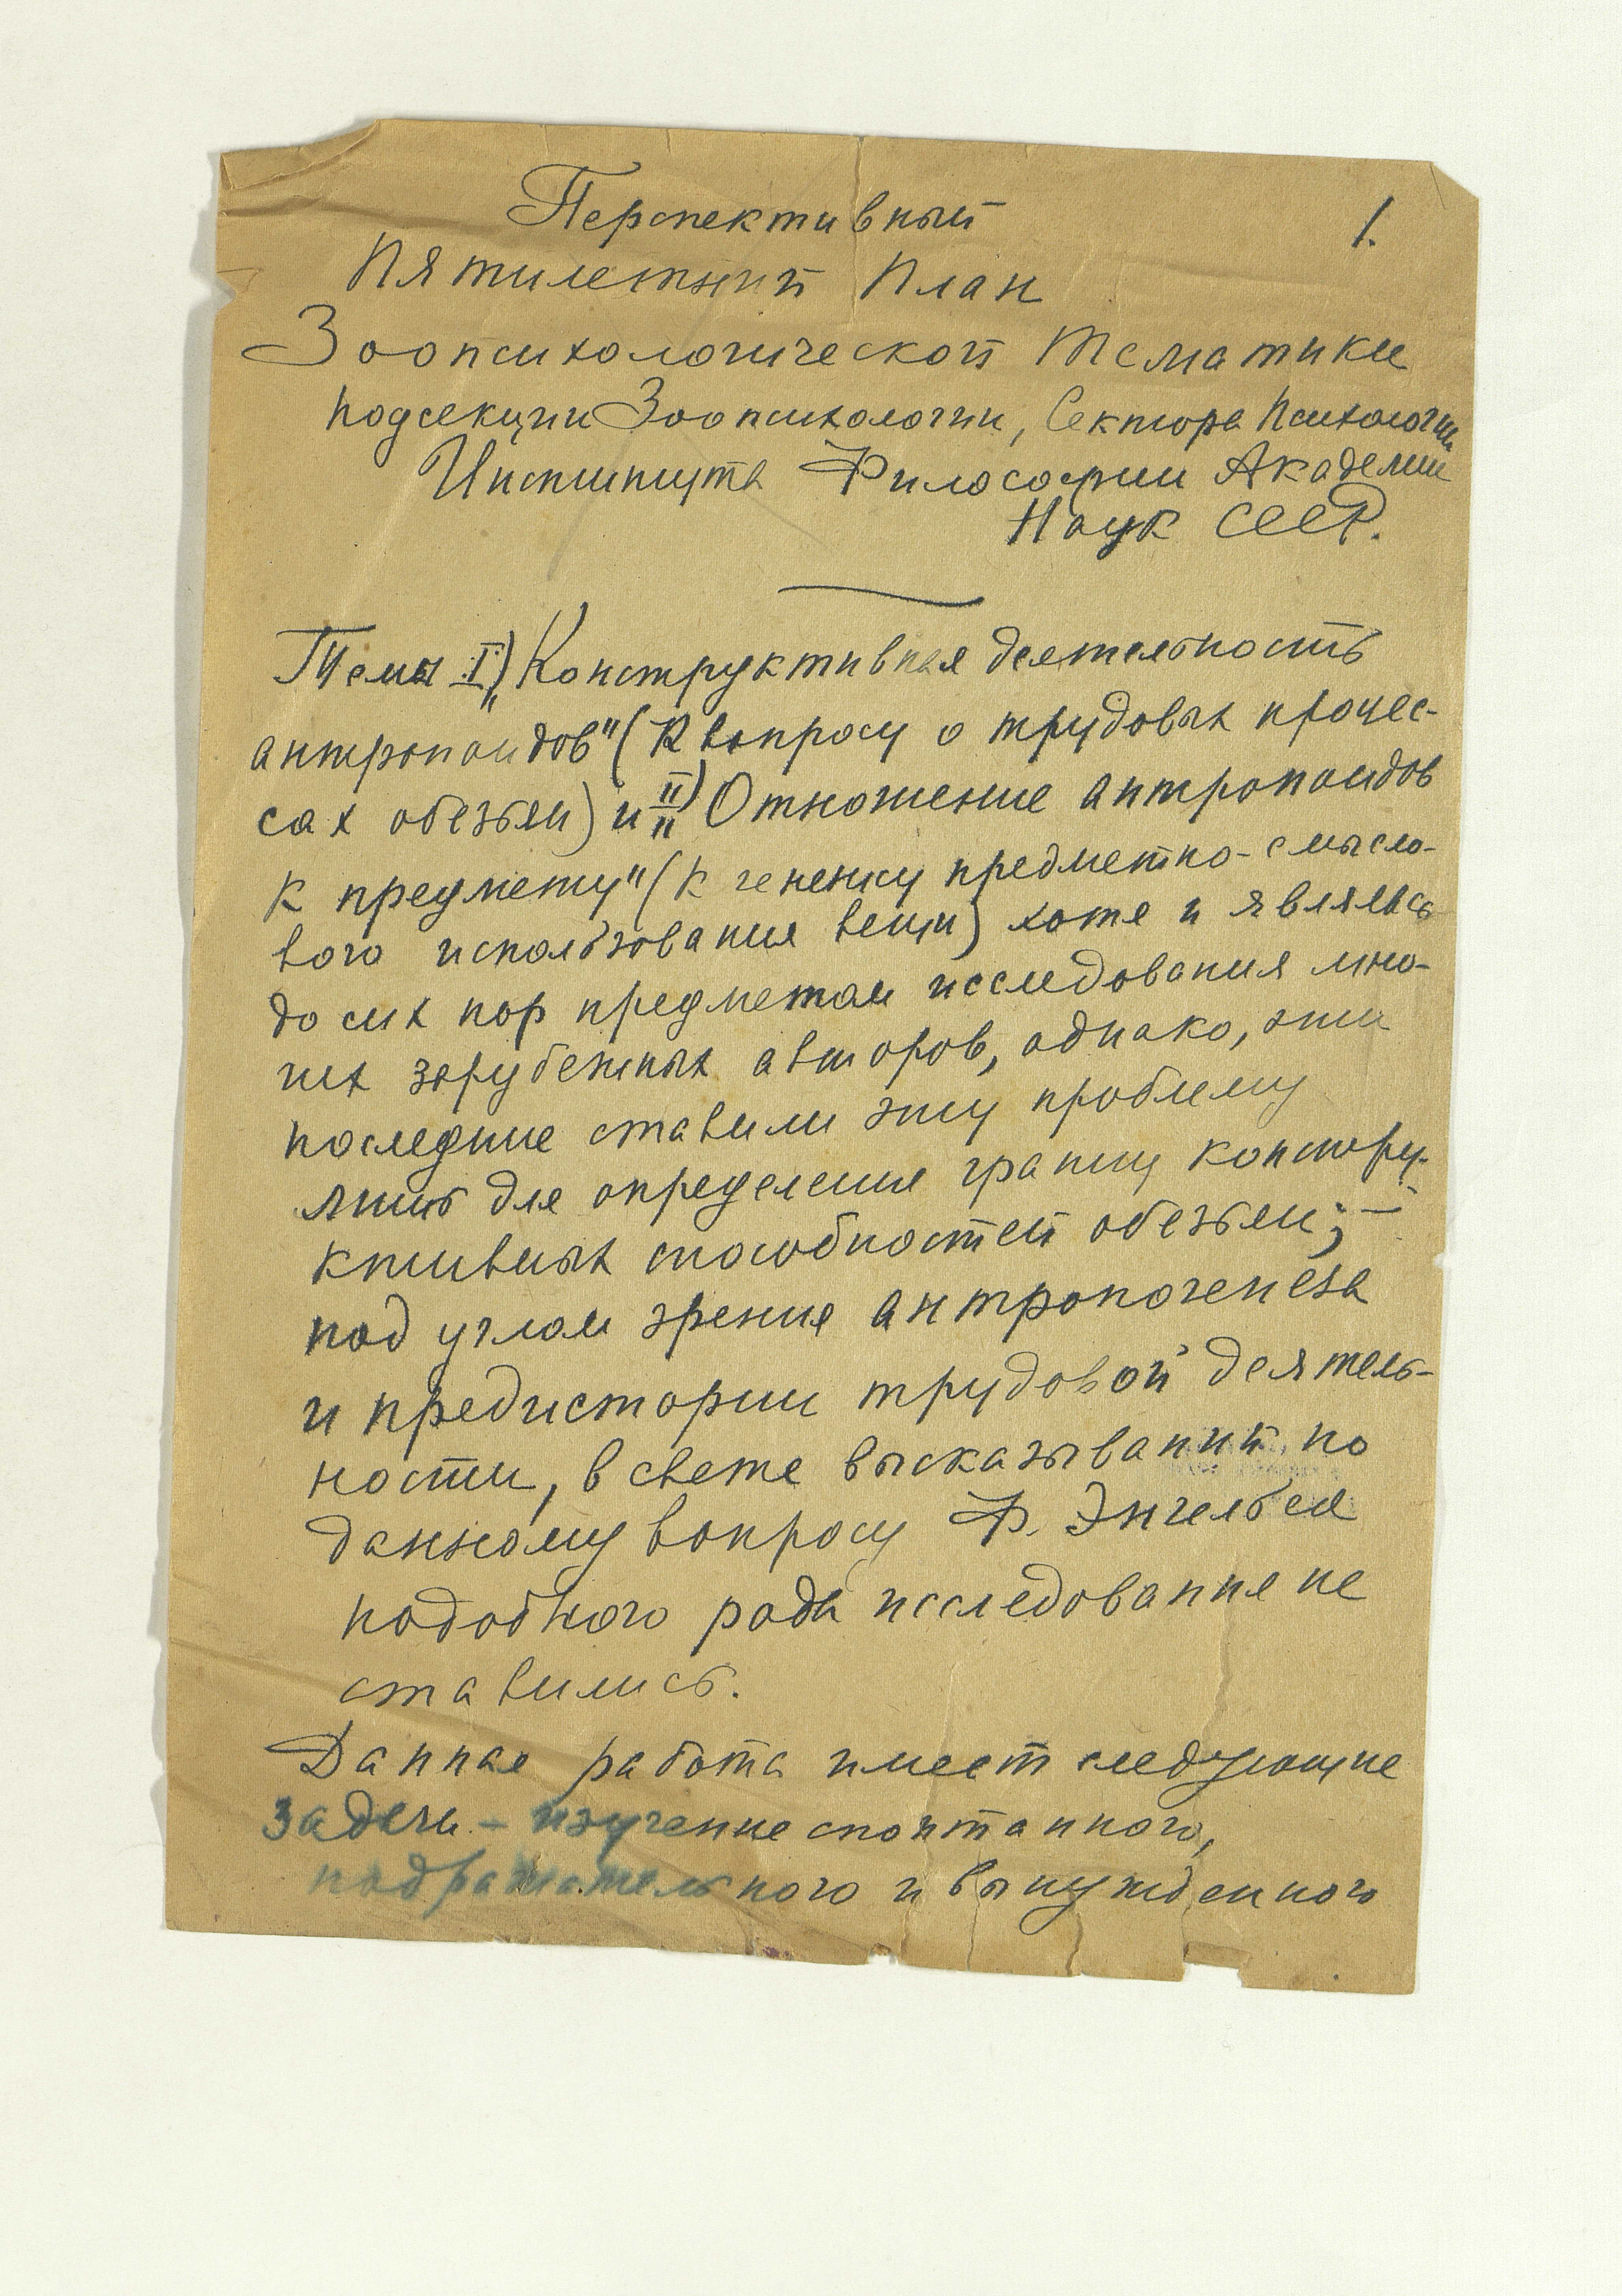 1.
Перспективный
Пятилетний План
Зоопсихологической тематики
подсекции Зоопсихологии, Сектора Психологии
Института Философии Академии
Наук СССР.
Темы I) „Конструктивная деятельность
антропоидов" (К вопросу о трудовых процес-
сах обезьян) и II) „Отношение антропоидов
к предмету" (К генезису предметно-смысло-
вого использования вещи) хотя и являлись
до сих пор предметом исследования мно-
гих зарубежных авторов, однако, эти
последние ставили эту проблему
лишь для определения границ констру-
ктивных способностей обезьян; –
под углом зрения антропогенеза
и предистории трудовой деятель-
ности, в свете высказываний по
данному вопросу Ф. Энгельса
подобного рода исследования не
ставились.
Данная работа имеет следующие
задачи – изучение спонтанного,
подражательного и вынужденного